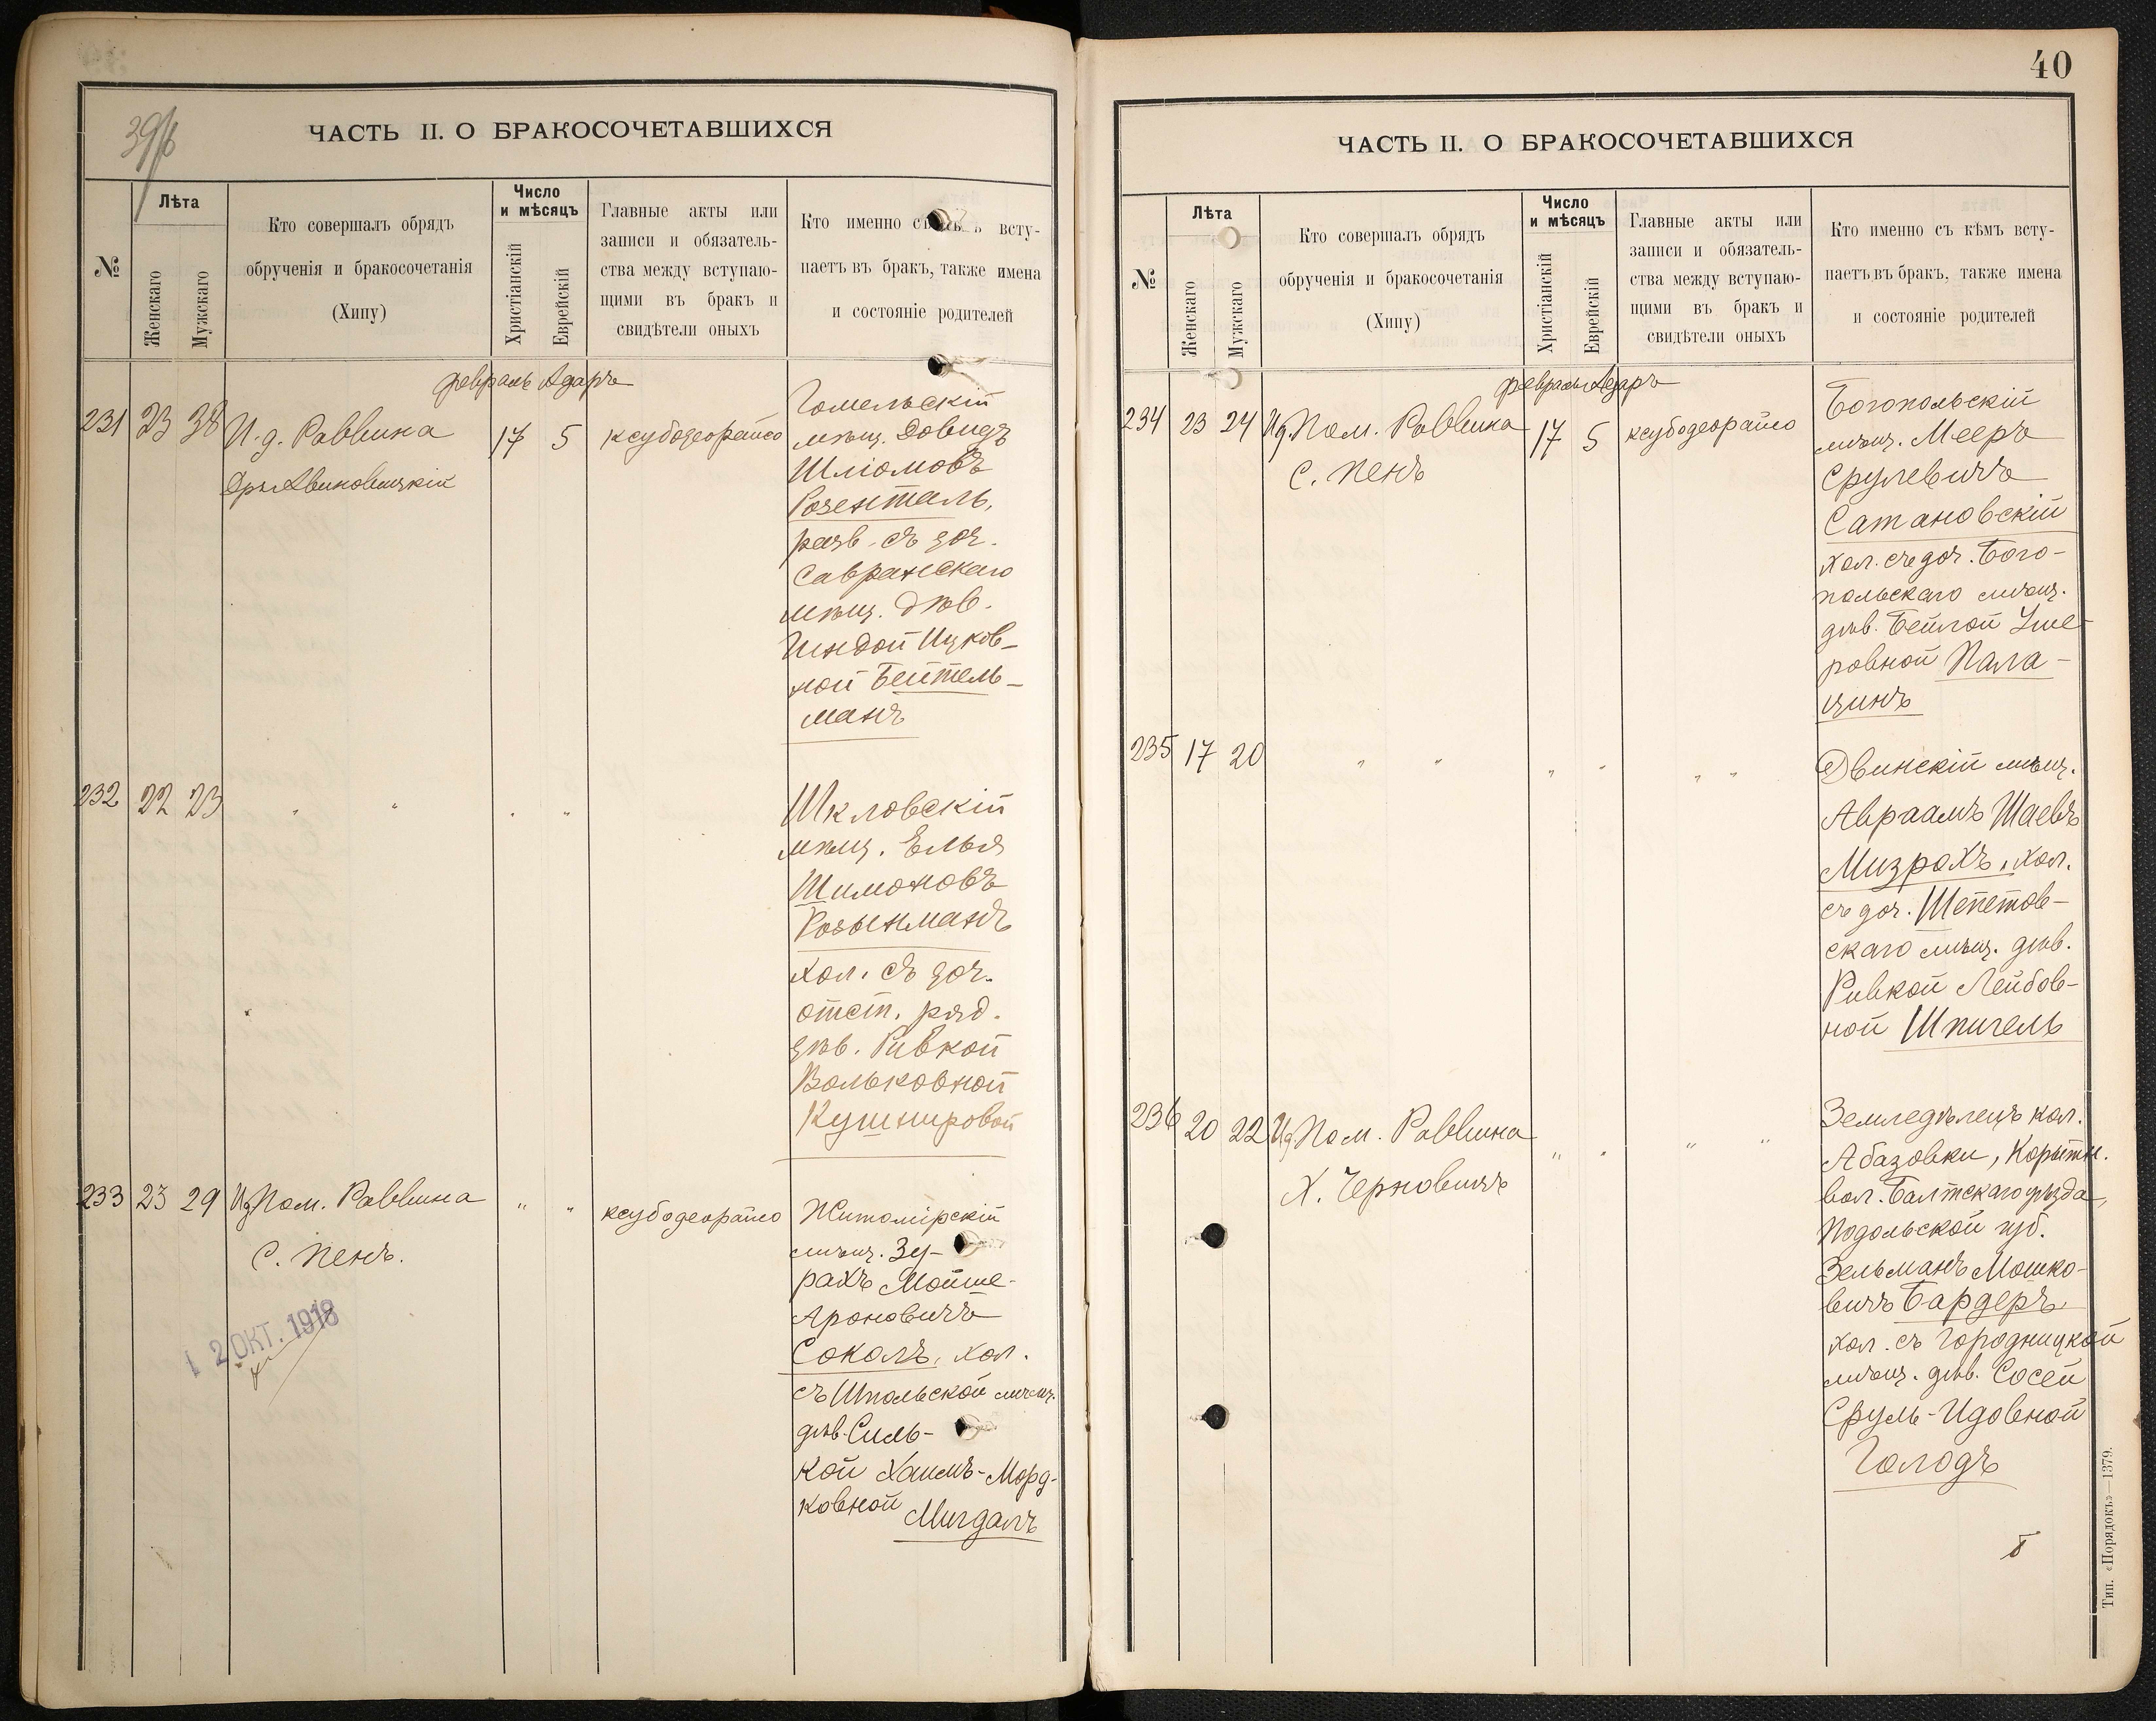 39/б
ЧАСТЬ II. О БРАКОСОЧЕТАВШИХСЯ
№
Лѣта
Женскаго
Мужскаго
Кто совершалъ обрядъ
обрученія и бракосочетанія
(Хипу)
Число
и мѣсяцъ
Христіанскій
Еврейскій
Главные акты или
записи и обязатель-
ства между вступаю-
щими въ бракъ и
свидѣтели оныхъ
Кто именно съ всту-
паетъ въ бракъ, также имена
и состояніе родителей
февраль Адаръ
231 23 38 И. д. Раввина 17 5 ксубодеорайсо
Гомельскій
мѣщ. Довидъ
Шліомовъ
Розенталь,
разв. съ доч.
Савранскаго
мѣщ. дѣв.
Гиндой Ицков-
ной Бейтель-
манъ
232 22 23 " " " "
Шкловскій
мѣщ. Елья
Шимоновъ
Розынманъ
хол. съ доч.
отст. ряд.
дѣв. Ривкой
Вольковной
Кушнировой
233 23 29 Ид Пом. Раввина " " ксубодеорайсо
С. Пенъ.
12 ОКТ. 1918
Житомірскій
мѣщ. Зу-
рахъ Мойше-
Ароновичъ
Соколъ, хол.
съ Шпольской мѣщ.
дѣв. Силь-
кой Хаимъ-Морд-
ковной
Мигдалъ
40
ЧАСТЬ II. О БРАКОСОЧЕТАВШИХСЯ
№
Лѣта
Женскаго
Мужскаго
Кто совершалъ обрядъ
обрученія и бракосочетанія
(Хипу)
Число
и мѣсяцъ
Христіанскій
Еврейскій
Главные акты или
записи и обязатель-
ства между вступаю-
щими въ бракъ и
свидѣтели оныхъ
Кто именно съ кѣмъ всту-
паетъ въ бракъ, также имена
и состояніе родителей
февраль Адаръ
234 23 24 Ид. Пом. Раввина 17 5 ксубодеорайсо
С. Пенъ
Богопольскій
мѣщ. Мееръ
Срулевичъ
Сатановскій
хол. съ доч. Бого-
польскаго мѣщ.
дѣв. Бейлой Уше-
ровной Пала-
цинъ
235 17 20 " " " " " "
Двинскій мѣщ.
Авраамъ Шаевъ
Мизрахъ, хол.
съ доч. Шепетов-
скаго мѣщ. дѣв.
Ривкой Лейбов-
ной Шпигель
236 20 22 Ид. Пом. Раввина " " " "
Х. Черновичъ
Земледѣлецъ кол.
Абазовки, Корытн.
вол. Балтскаго уѣзда,
Подольской губ.
Зельманъ Мошко-
вичъ Бардеръ
хол. съ Городницкой
мѣщ. дѣв. Сосей
Сруль-Идовной
Голодъ
Тип. «Порядокъ»—1379.